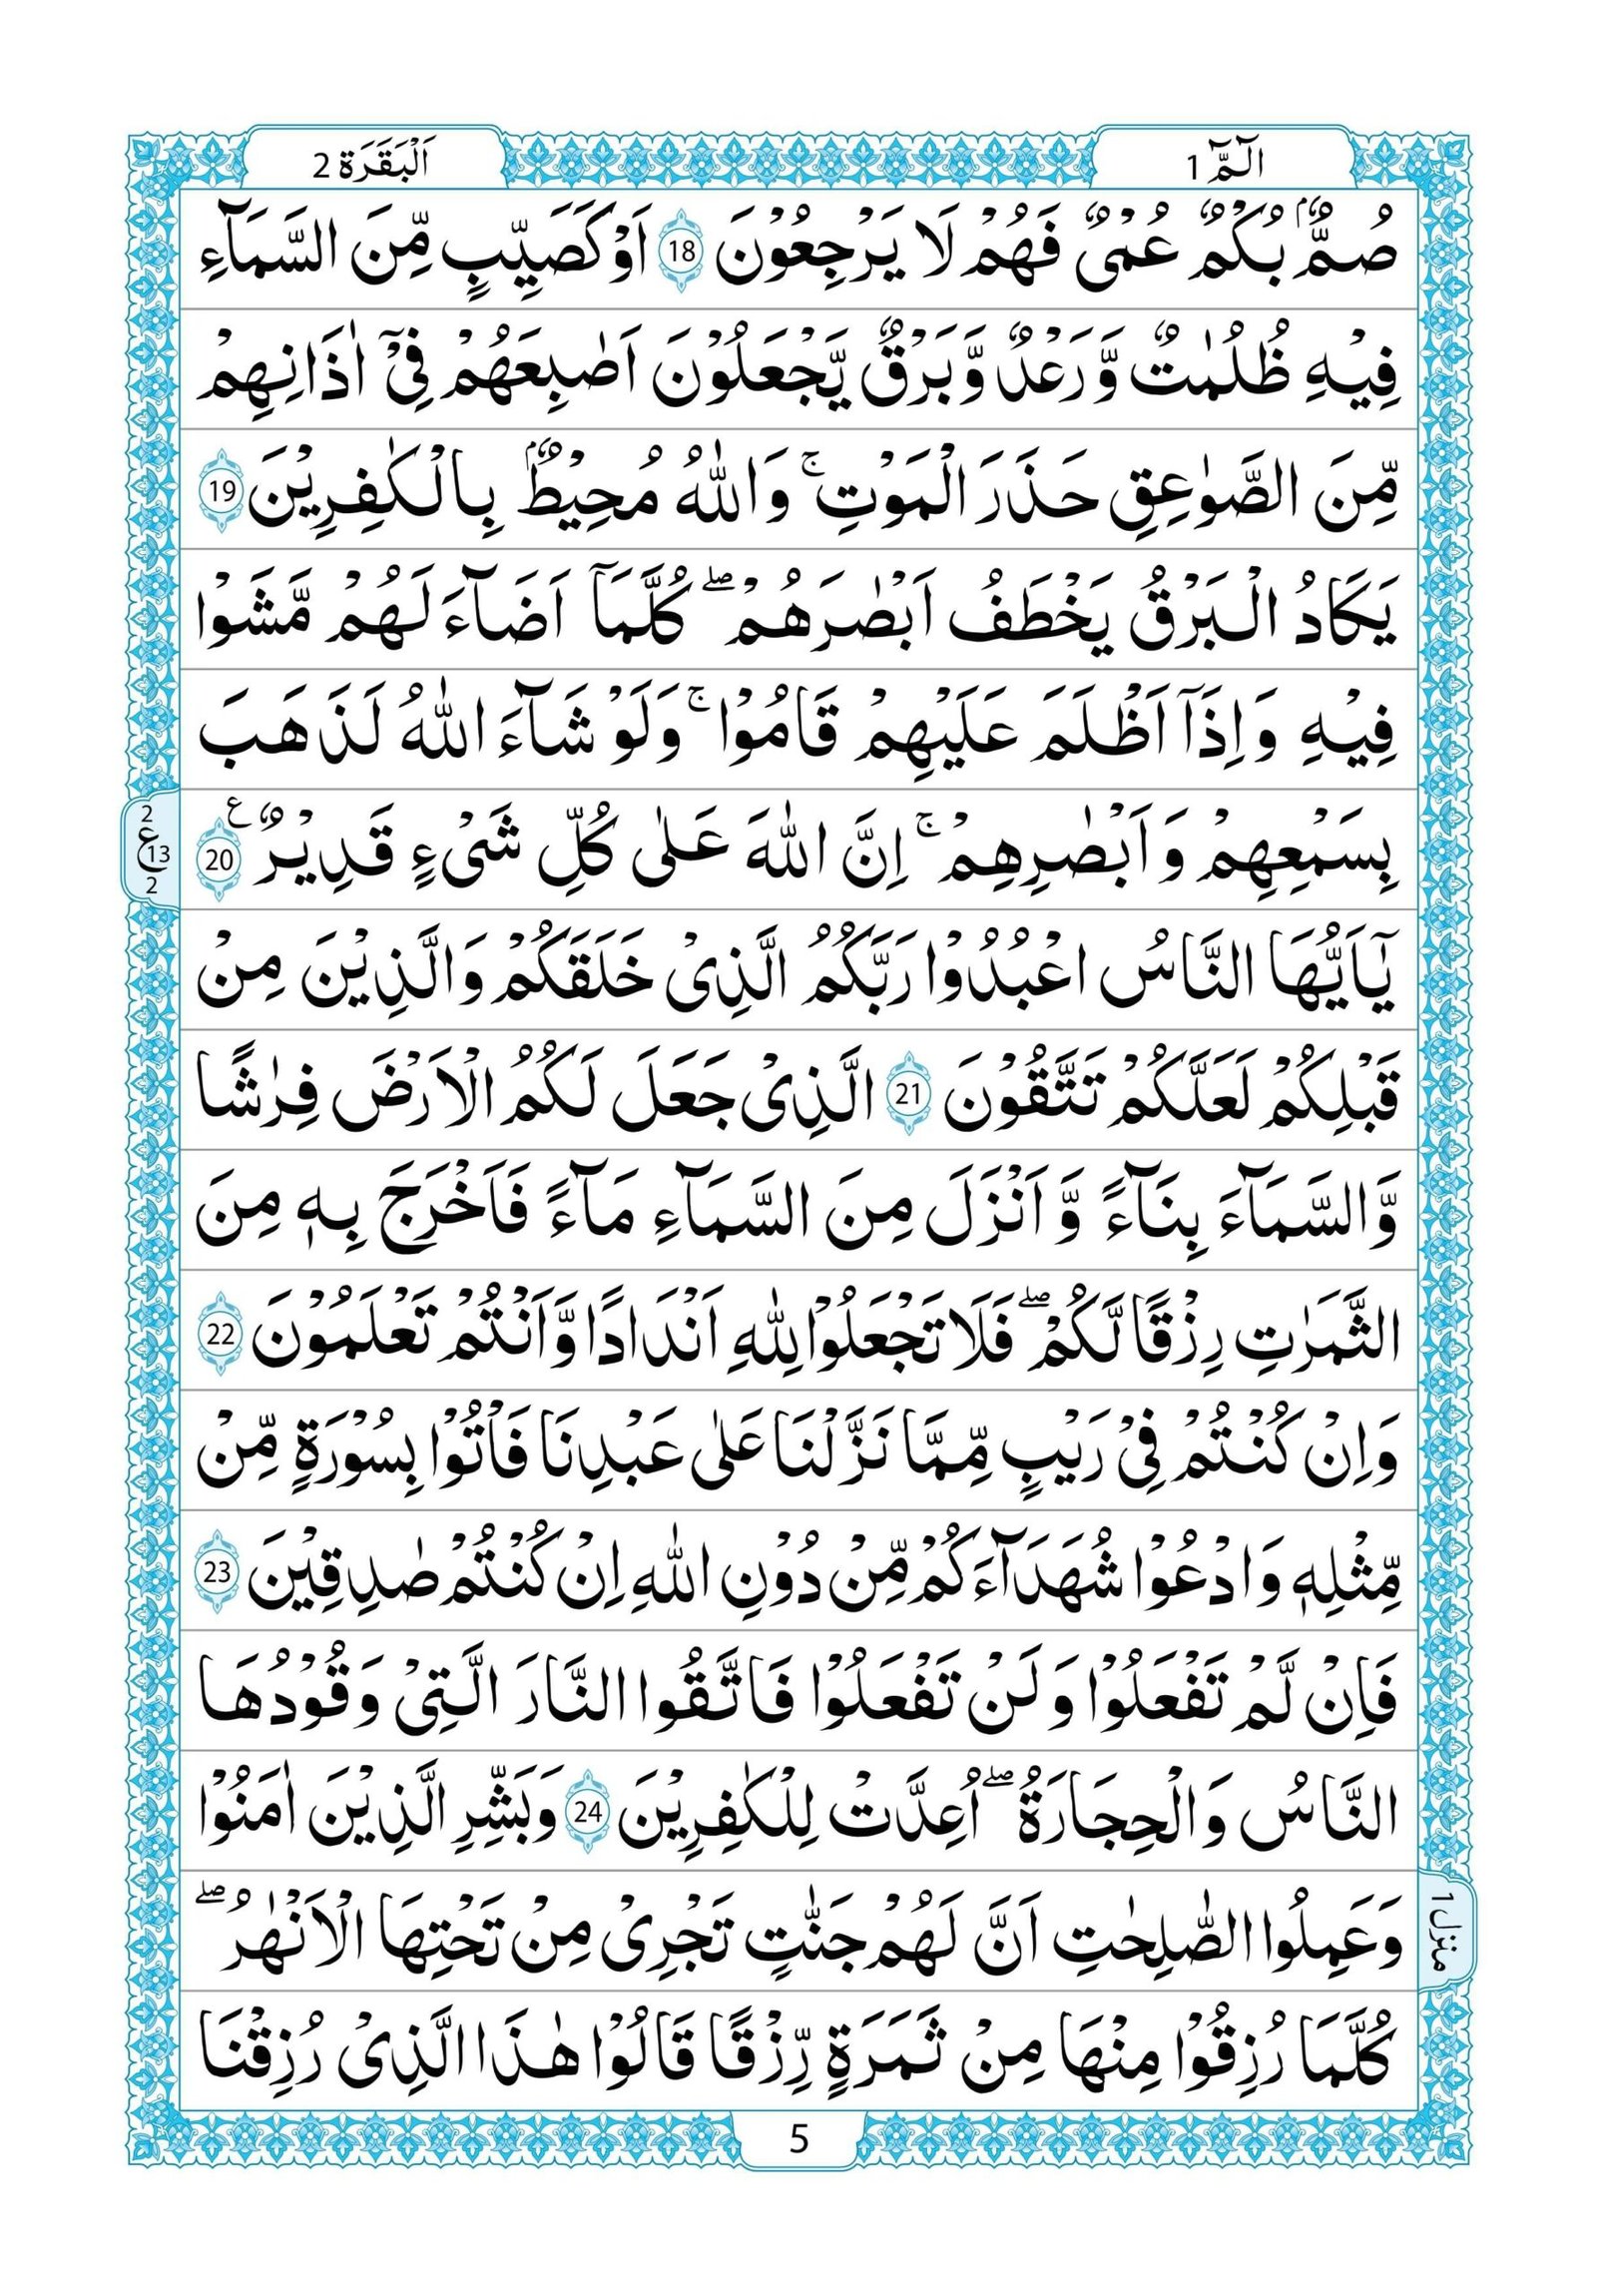 الٓمّٓ 1
اَلْبَقَرَة 2
صُمٌّۢ بُكْمٌ عُمْیٌ فَهُمْ لَا یَرْجِعُوْنَ 18 اَوْ كَصَیِّبٍ مِّنَ السَّمَآءِ
فِیْهِ ظُلُمٰتٌ وَّ رَعْدٌ وَّ بَرْقٌ یَّجْعَلُوْنَ اَصَابِعَهُمْ فِیْۤ اٰذَانِهِمْ
مِّنَ الصَّوٰعِقِ حَذَرَ الْمَوْتِ ۚ وَاللّٰهُ مُحِیْطٌۢ بِالْكٰفِرِیْنَ 19
یَكَادُ الْبَرْقُ یَخْطَفُ اَبْصٰرَهُمْ ۖ كُلَّمَاۤ اَضَآءَ لَهُمْ مَّشَوْا
فِیْهِ وَ اِذَاۤ اَظْلَمَ عَلَیْهِمْ قَامُوْا ۚ وَلَوْ شَآءَ اللّٰهُ لَذَهَبَ
بِسَمْعِهِمْ وَ اَبْصٰرِهِمْ ۚ اِنَّ اللّٰهَ عَلٰی كُلِّ شَیْءٍ قَدِیْرٌ ع 20
2 ع 13 2
یٰۤاَیُّهَا النَّاسُ اعْبُدُوْا رَبَّكُمُ الَّذِیْ خَلَقَكُمْ وَالَّذِیْنَ مِنْ
قَبْلِكُمْ لَعَلَّكُمْ تَتَّقُوْنَ 21 الَّذِیْ جَعَلَ لَكُمُ الْاَرْضَ فِرٰشًا
وَّالسَّمَآءَ بِنَآءً وَّ اَنْزَلَ مِنَ السَّمَآءِ مَآءً فَاَخْرَجَ بِهٖ مِنَ
الثَّمَرٰتِ رِزْقًا لَّكُمْ ۖ فَلَا تَجْعَلُوْا لِلّٰهِ اَنْدَادًا وَّاَنْتُمْ تَعْلَمُوْنَ 22
وَاِنْ كُنْتُمْ فِیْ رَیْبٍ مِّمَّا نَزَّلْنَا عَلٰی عَبْدِنَا فَاْتُوْا بِسُوْرَةٍ مِّنْ
مِّثْلِهٖ وَ ادْعُوْا شُهَدَآءَكُمْ مِّنْ دُوْنِ اللّٰهِ اِنْ كُنْتُمْ صٰدِقِیْنَ 23
فَاِنْ لَّمْ تَفْعَلُوْا وَ لَنْ تَفْعَلُوْا فَاتَّقُوا النَّارَ الَّتِیْ وَ قُوْدُهَا
النَّاسُ وَالْحِجَارَةُ ۖ اُعِدَّتْ لِلْكٰفِرِیْنَ 24 وَبَشِّرِ الَّذِیْنَ اٰمَنُوْا
وَعَمِلُوا الصّٰلِحٰتِ اَنَّ لَهُمْ جَنّٰتٍ تَجْرِیْ مِنْ تَحْتِهَا الْاَنْهٰرُ ۖ
منزل 1
كُلَّمَا رُزِقُوْا مِنْهَا مِنْ ثَمَرَةٍ رِّزْقًا قَالُوْا هٰذَا الَّذِیْ رُزِقْنَا
5